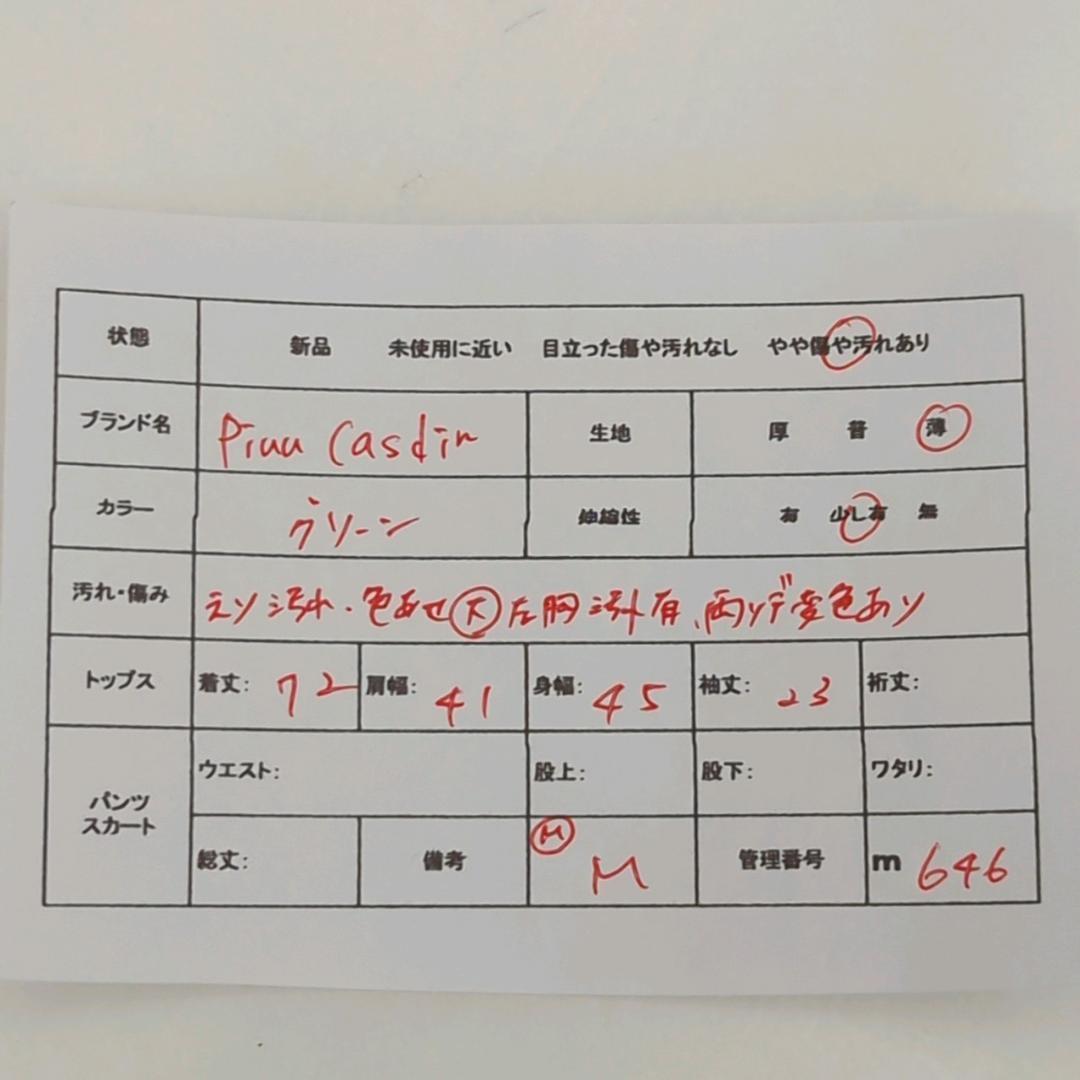 状態 新品 未使用に近い 目立った傷や汚れなし やや傷や汚れあり
ブランド名 生地 厚 普 薄
カラー グリーン 伸縮性 有 少し有 無
汚れ・傷み えり汚れ・色あせ 大 左胸汚れ有、両ソデ変色あり
トップス 着丈: 72 肩幅: 41 身幅: 45 袖丈: 23 裄丈:
パンツ スカート ウエスト: 股上: 股下: ワタリ:
総丈: 備考 M M 管理番号 m 646